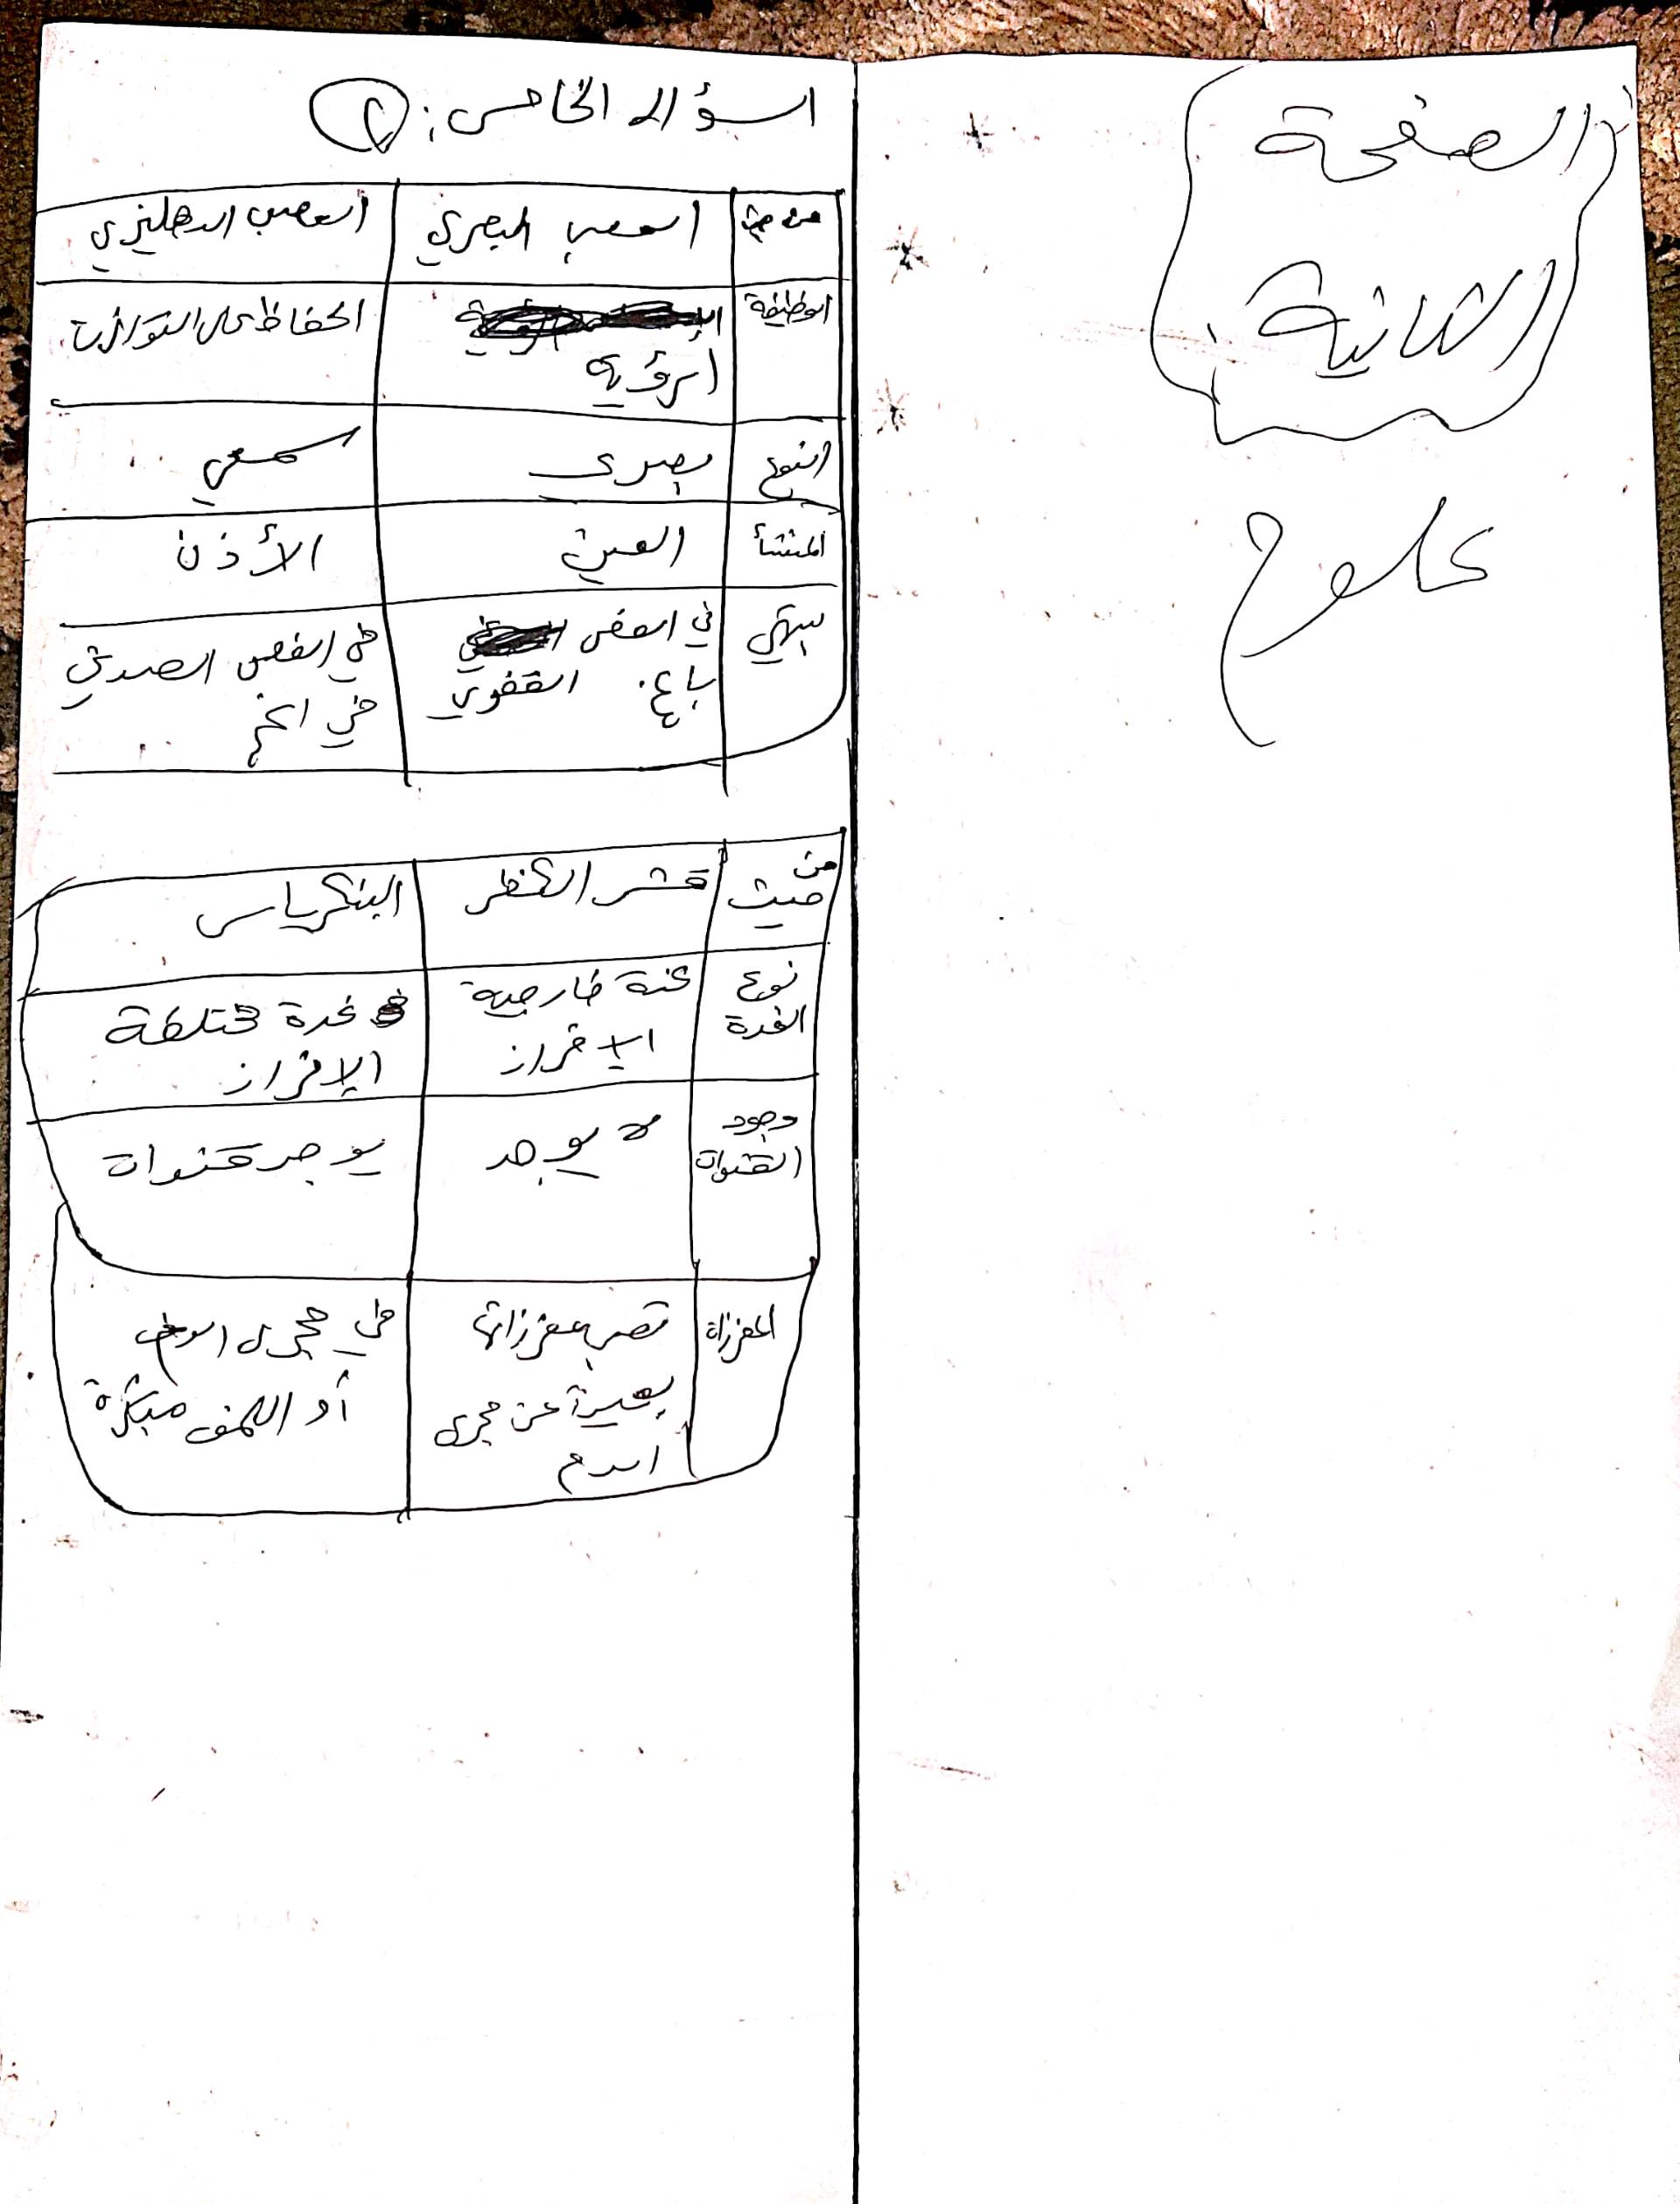 الصفحة
الثانية
علوم
اسؤال الخامس: ٢
من حيث العصب البصري العصب الدهليزي
الوظيفة الرؤية الحفاظ على التوازن
النوع بصري سمعي
المنشأ العين الأذن
ينتهي في الفص القفوي باع. في الفص الصدغي في المخ
من حيث قشر الكظر البنكرياس
نوع الغدة غدة خارجية الإفراز غدة مختلطة الإفراز
وجود القنوات لا يوجد يوجد قنوات
المفرزات تصب مفرزاتها بعيدة عن مجرى الدم في مجرى أو اللمف مباشرة